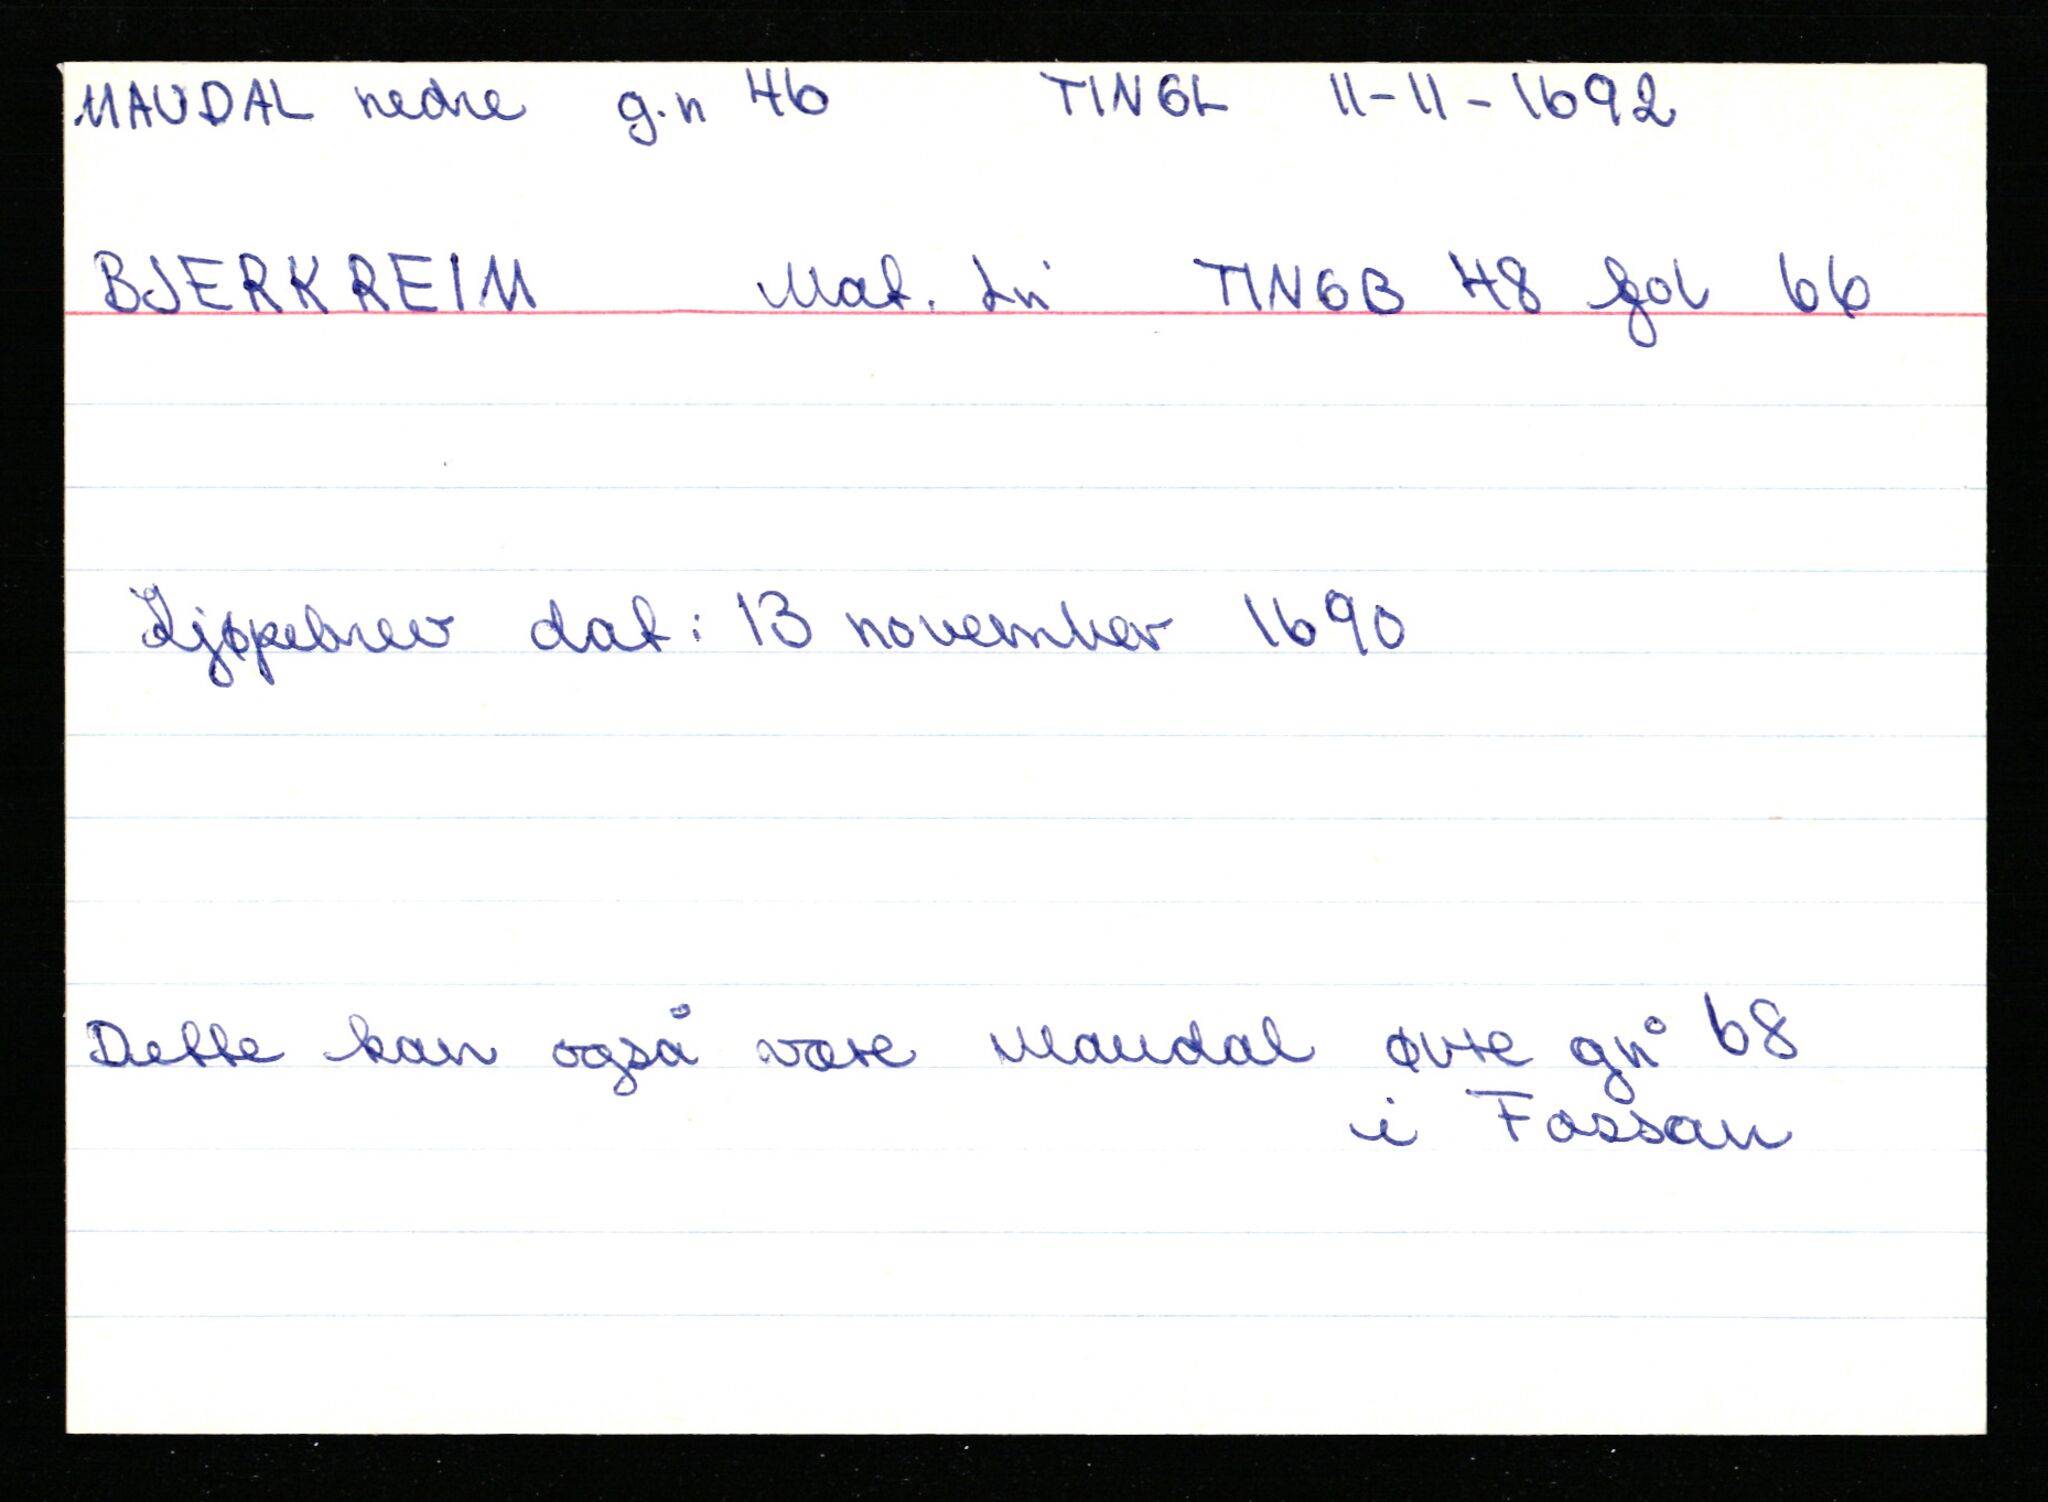 MAUDAL nedre g.n 46 TINGL 11-11-1692
BJERKREIM Mat. Ln TINGB 48 fol 66
Kjøpebrev dat: 13 november 1690
Dette kan også være Maudal øvre gn° 68
i Fossan